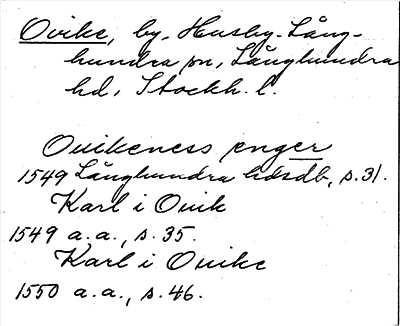 Ovike, by, Husby-Lång-
hundra sn, Långhundra
hd, Stockh. l.
Ouikeness enger
1549 Långhundra hdsdb, s.31.
Karl i Ouik
1549 a.a., s.35.
Karl i Ouike
1550 a.a., s.46.